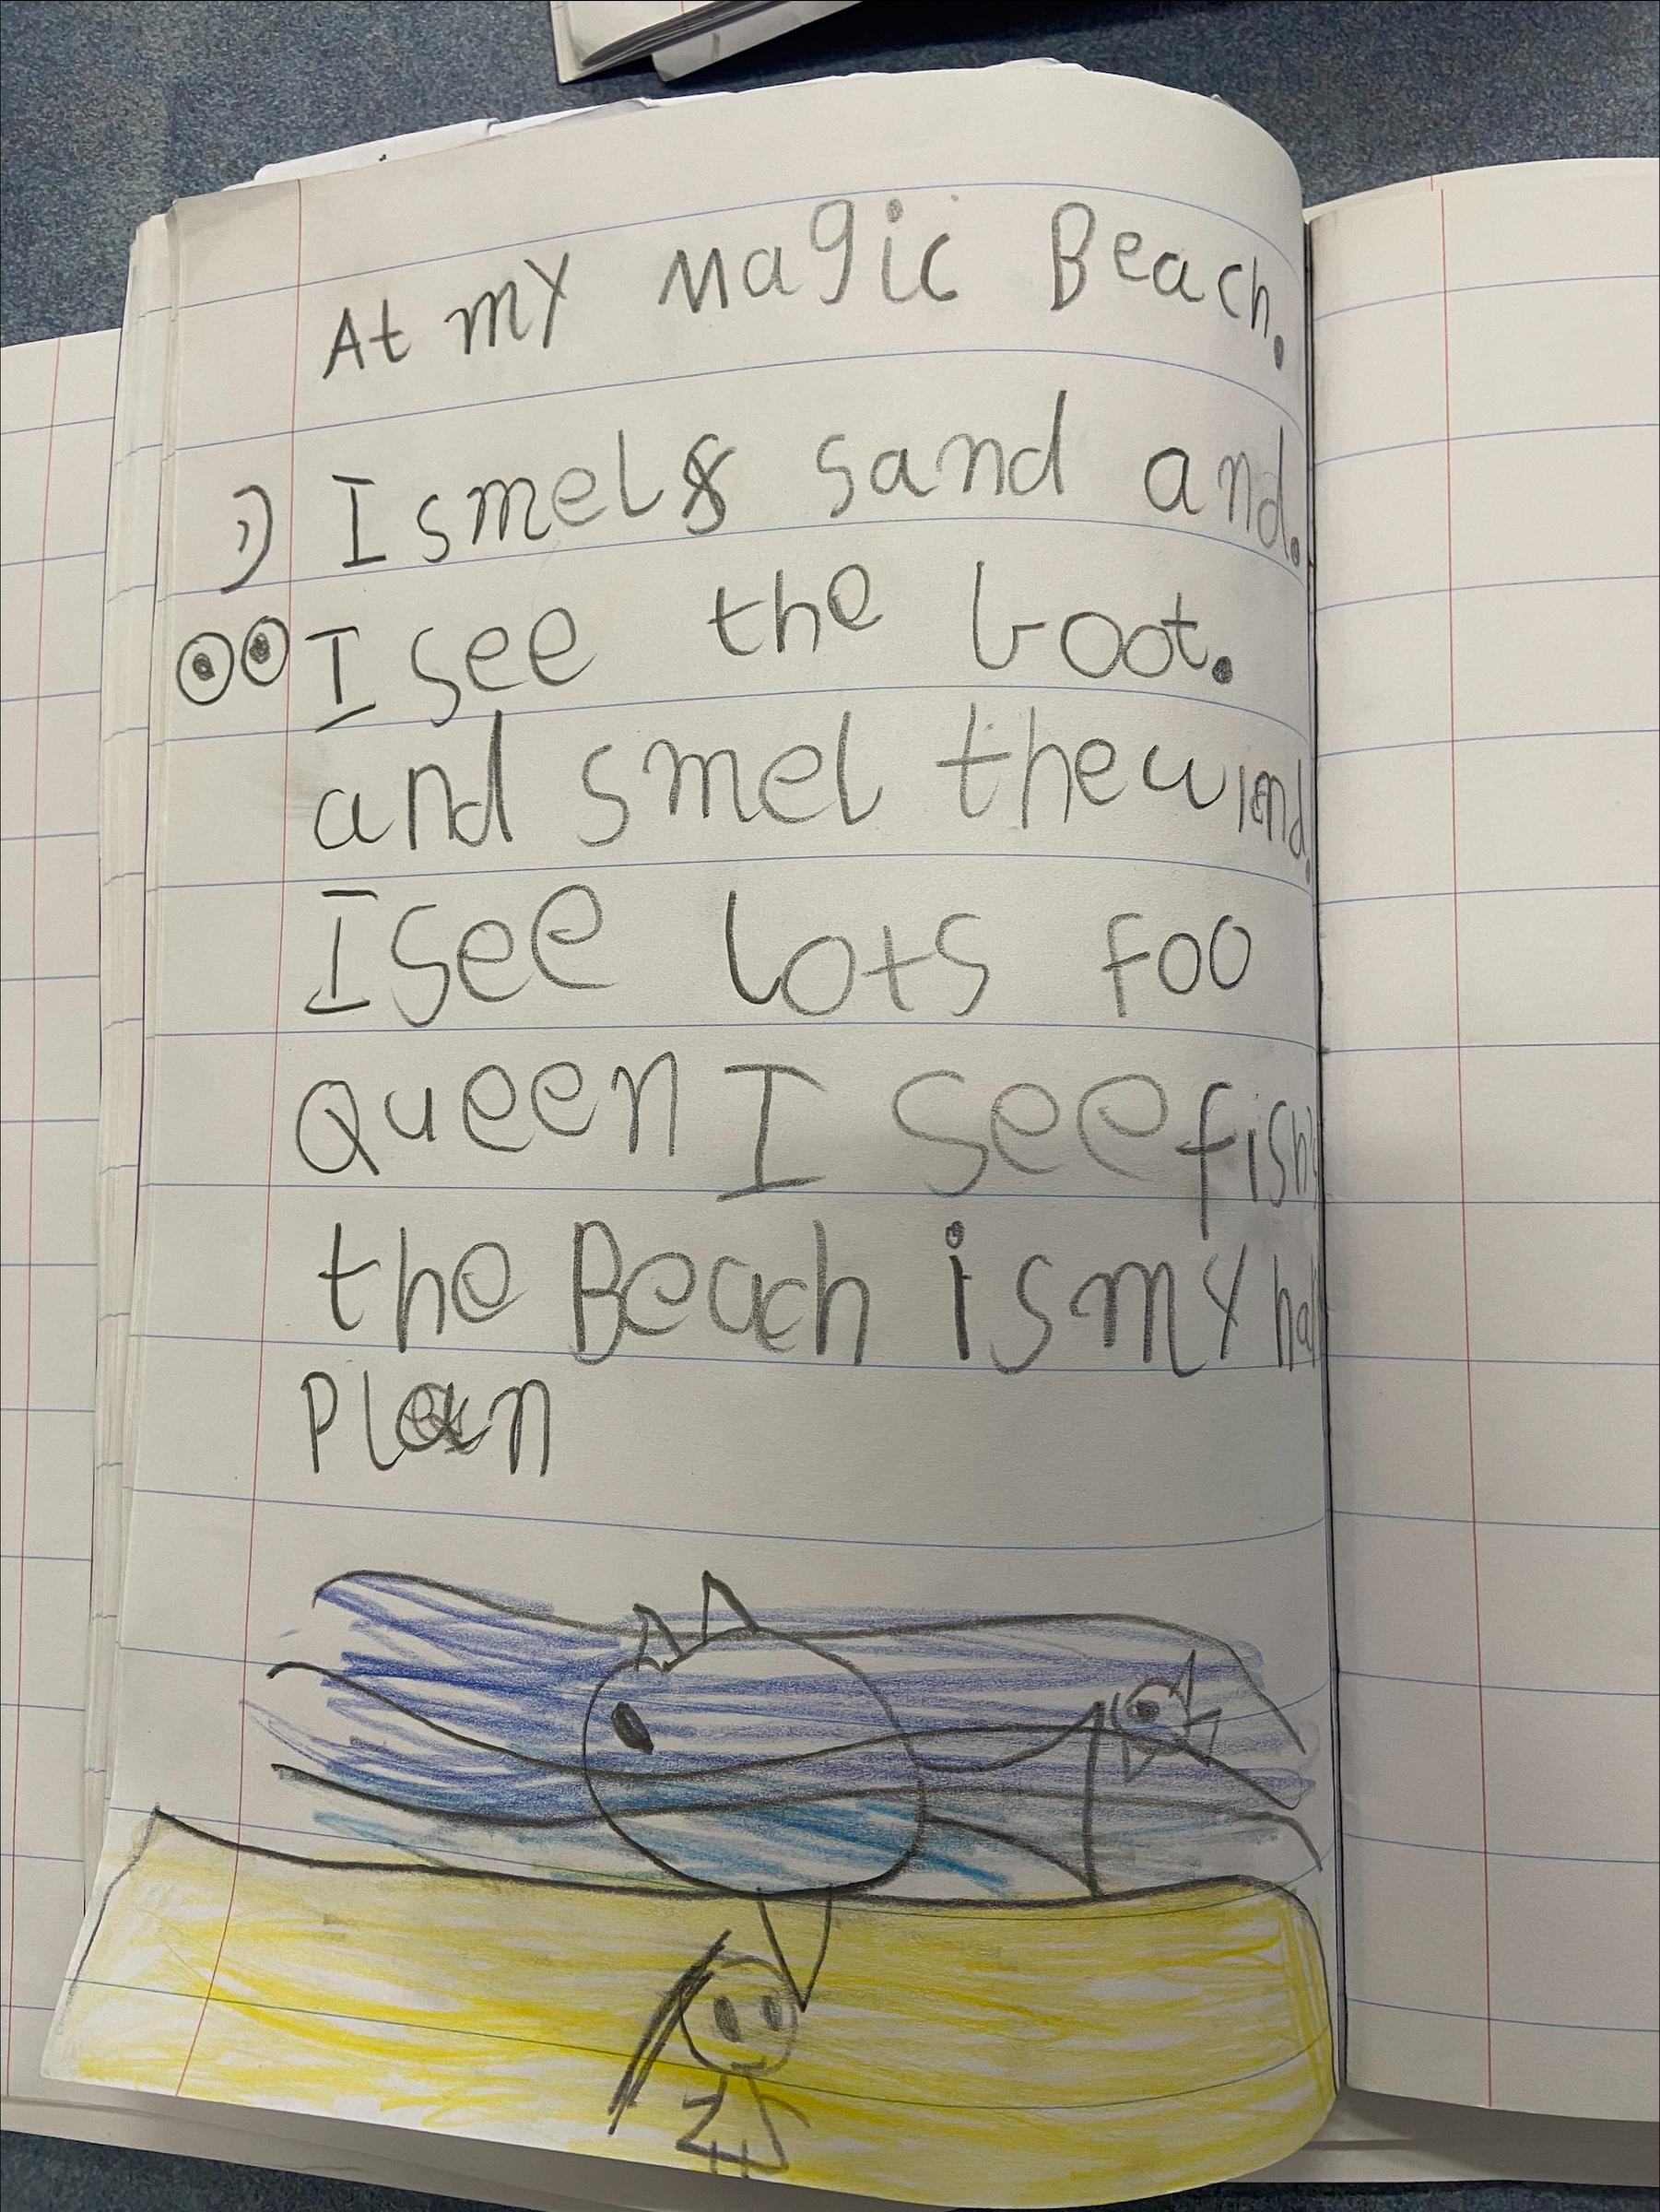 At my Magic Beach.
I smel sand and.
I see the boot.
and smel the wind.
I see lots foo
Queen I see fish
the Beach is my